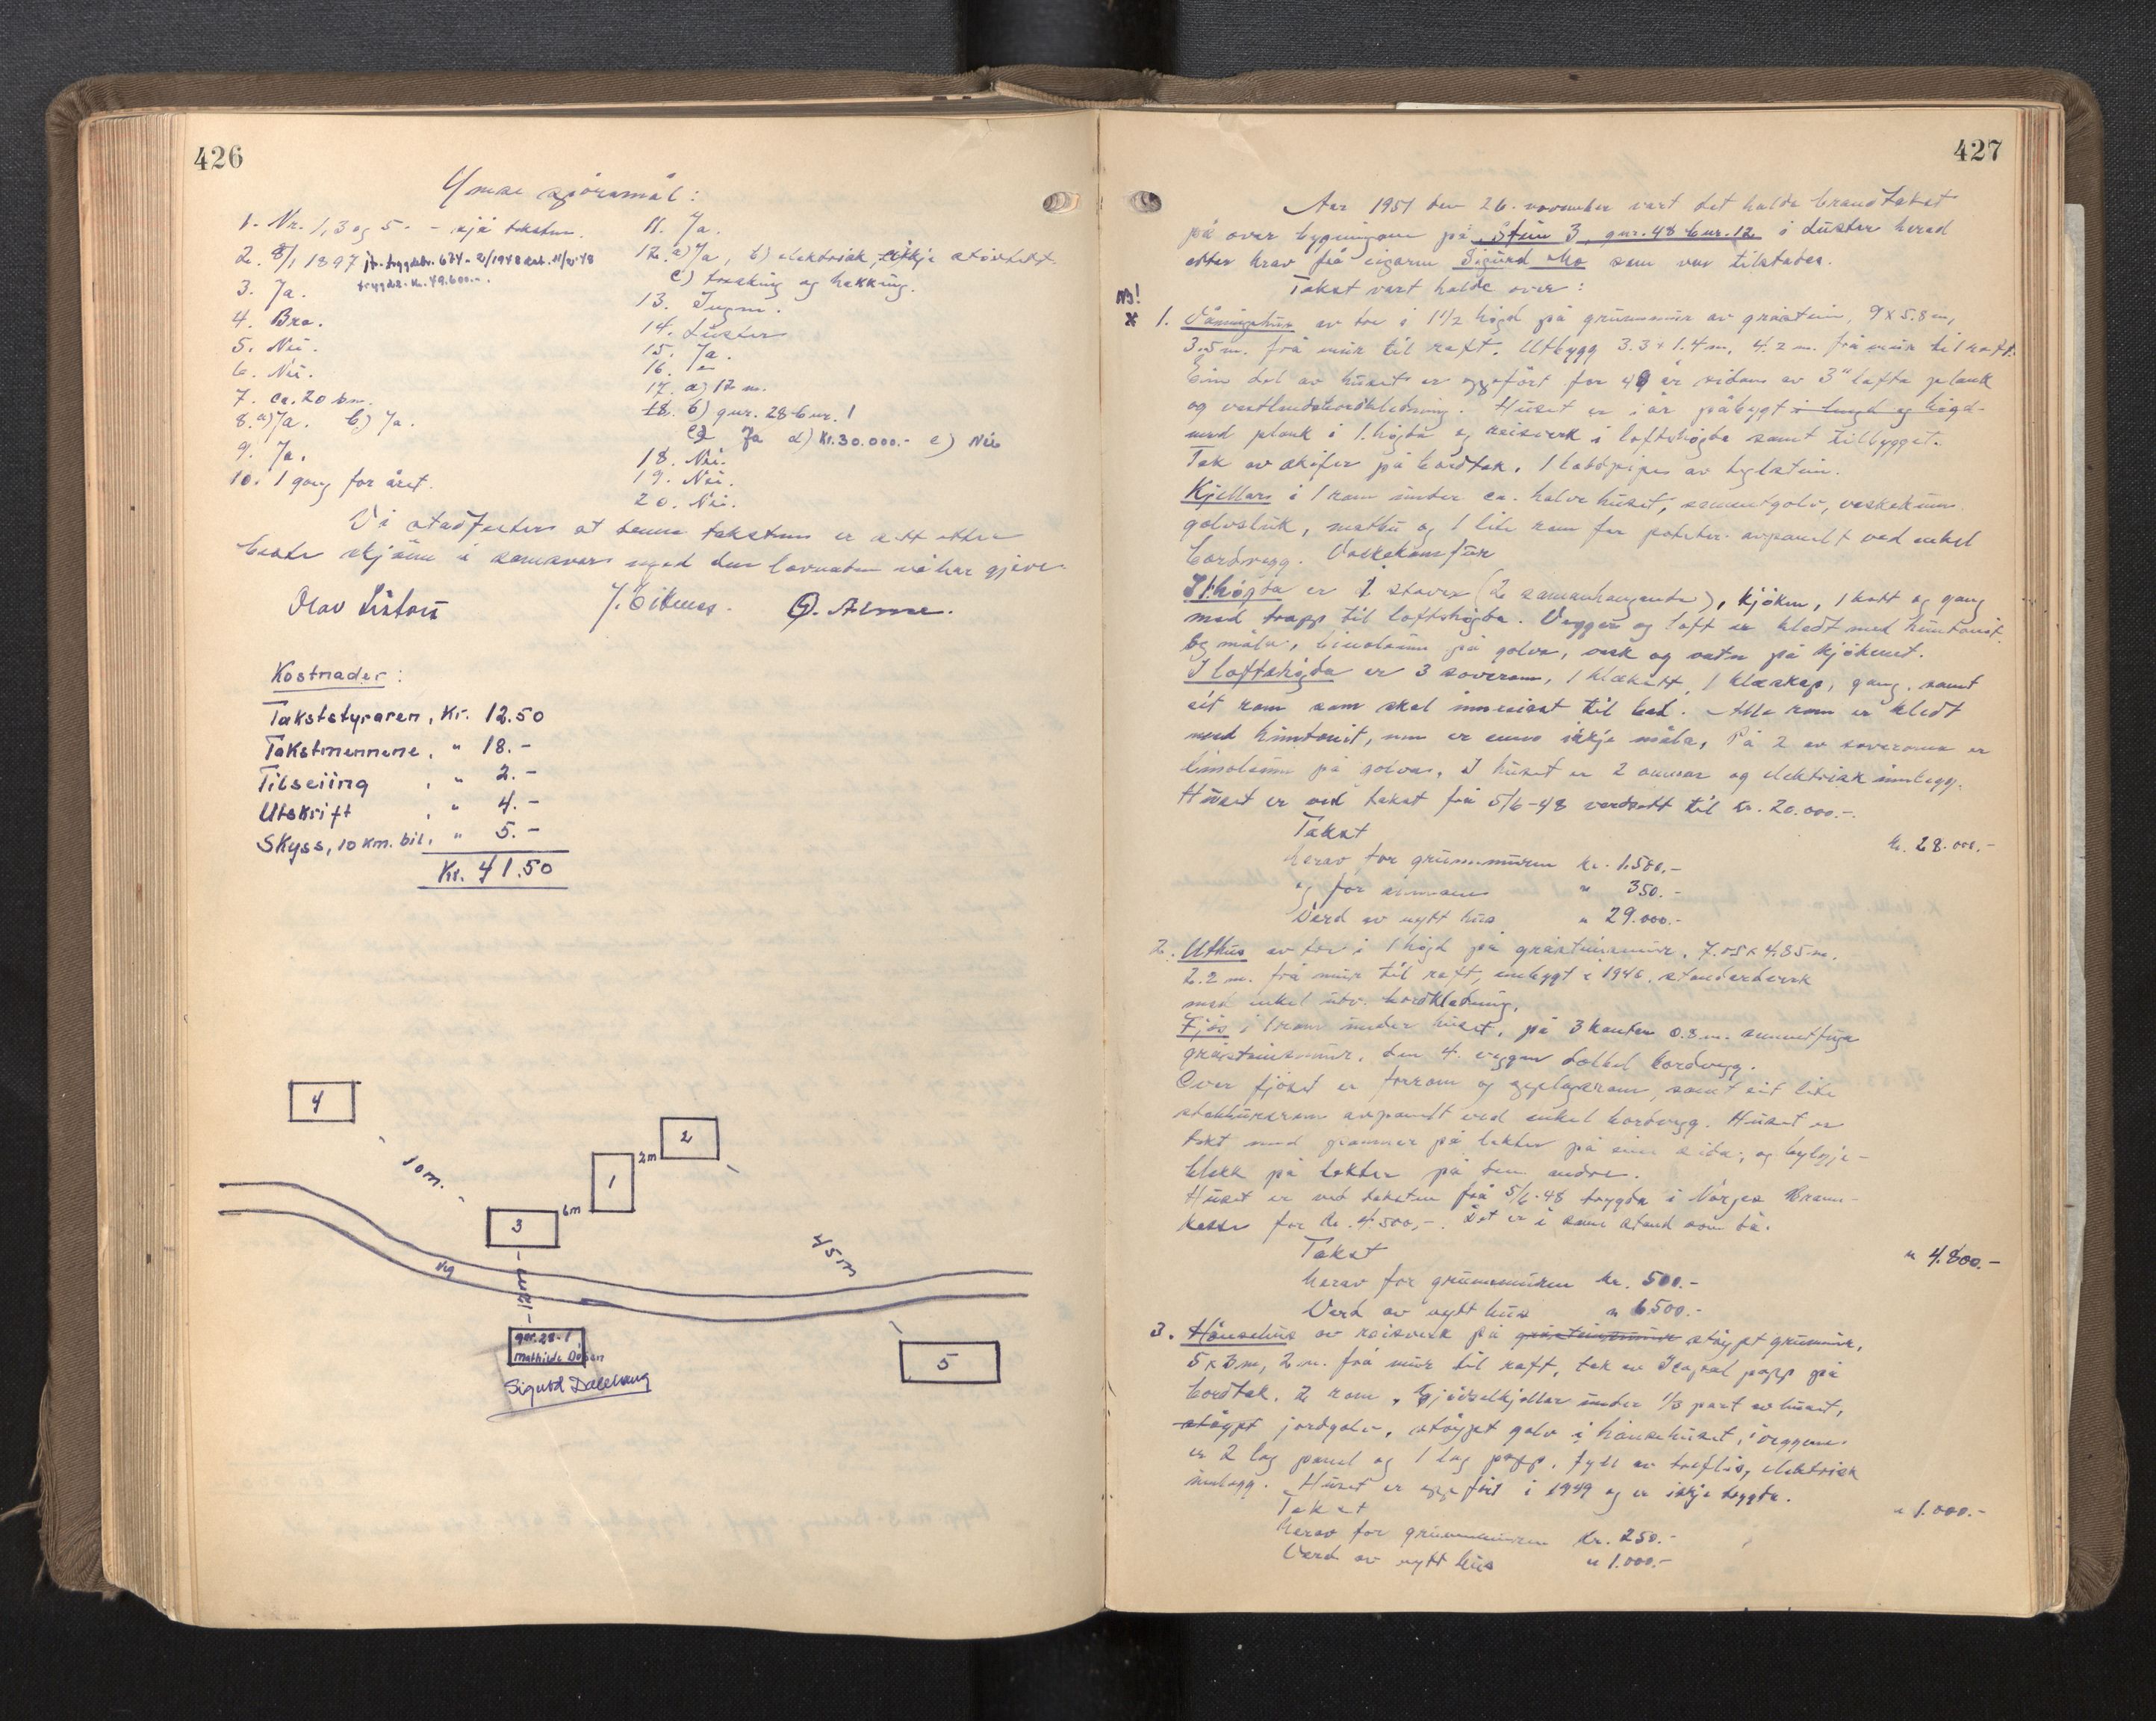 426
Ymse spörsmål:
1. Nr. 1, 3 og 5. - sjå taksten.
2. 8/1 1897 jfr. trygdebr. 674 - 2/1948 dat. 11/2-48
trygda kr. 49.600.-.
3. Ja.
4. Bra.
5. Nei.
6. Nei.
7. ca. 20 km.
8. a) Ja. b) Ja.
9. Ja.
10. 1 gong for året.
11. Ja.
12. a) Ja, b) elektrisk, ikkje støvtett
c) tresking og hakking.
13. Ingen.
14. Luster
15. Ja.
16.
17. a) 12 m.
18. b) gnr. 28 bnr. 1
c) Ja d) Kr. 30.000.- e) Nei
18. Nei.
19. Nei.
20. Nei.
Vi stadfester at denne taksten er sett etter
beste skjönn i samsvar med den lovnaden vi har gjeve.
Olav J. O. Alme.
Kostnader:
Takststyraren, Kr. 12.50
Takstmennene, " 18.-
Tilseiing , " 2.-
Utskrift , " 4.-
Skyss, 10 km. bil, " 5.-
Kr. 41.50
4
10 m.
2
2m
1
6m
3
Veg
12m
45m
gnr. 28-1
Mathilde
Sigurd
5
427
Aar 1951 den 26. november vart det halde brandtakst
på over bygningane på Stein 3, gnr. 48 bnr. 12 i Luster herad
etter krav frå eigaren Sigurd Mo som var tilstades.
Takst vart halde over:
NB!
x 1. Våningshus av tre i 1 1/2 högd på grunnmur av gråstein, 9 x 5.8 m,
3.5 m. frå mur til raft. Utbygg 3.3 x 1.4 m, 4.2 m. frå mur til raft.
Ein del av huset er oppfört for 40 år sidan av 3" lafta plank
og vestlandsbordkledning. Huset er i år påbygt i lengd og högd
med plank i 1. högda og reisverk i loftshögda samt tilbygget.
Tak av skifer på bordtak. 1 pipe av teglstein.
Kjellar i 1 rom under ca. halve huset, sementgolv, vaskekum
golvsluk, matbu og 1 lite rom for poteter avpanelt ved enkel
bordvegg.
I 1. högda er 2 stover (2 samanhangande), kjöken, 1 kott og gang
med trapp til loftshögda. Vegger og loft er kledt med huntonit
og måla, linoleum på golva, vask og vatn på kjökenet.
I loftshögda er 3 soverom, 1 klekott, 1 kleskap, gang, samt
eit rom som skal innreiast til bad. Alle rom er kledt
med huntonit, men er enno ikkje måla. På 2 av soveromma er
linoleum på golva. I huset er 2 omnar og elektrisk innlegg.
Huset er ved takst frå 5/6-48 verdsett til kr. 20.000.-.
Takst kr. 28.000.-
herav for grunnmuren kr. 1.500.-
og for omnane " 350.-
Verd av nytt hus " 29.000.-
2. Uthus av tre i 1 högd på gråsteinsmur, 7.05 x 4.85 m.
2.2 m. frå mur til raft, ombygt i 1946, standerverk
med enkel utv. bordkledning.
Fjös i 1 rom under huset, på 3 kanter 0.8 m. sementfuga
gråsteinsmur, den 4. veggen dobbel bordvegg.
Over fjöset er forrom og opplagsrom, samt eit lite
stabbursrom avpanelt ved enkel bordvegg. Huset er
tekt med panner på lekter på eine sida, og bylgje-
blekk på lekter på den andre.
Huset er ved taksten frå 5/6-48 trygda i Norges Brann-
kasse for kr. 4.500,-. Det er i same stand som då.
Takst " 4.800.-
herav for grunnmuren kr. 500.-
Verd av nytt hus " 6500.-
3. Hönsehus av reisverk på gråsteinsmur stöypt grunmur,
5 x 3 m, 2 m. frå mur til raft, tak av papp på
bordtak. 2 rom. Gjödselkjellar under 1/3 part av huset,
stöypt jordgolv, stöypt golv i hönsehuset, i veggene
er 2 lag panel og 1 lag papp, fyll av treflis, elektrisk
innlegg. Huset er oppfört i 1949 og er ikkje trygda.
Takst " 1.000.-
herav for grunnmuren kr. 250.-
Verd av nytt hus " 1.000.-